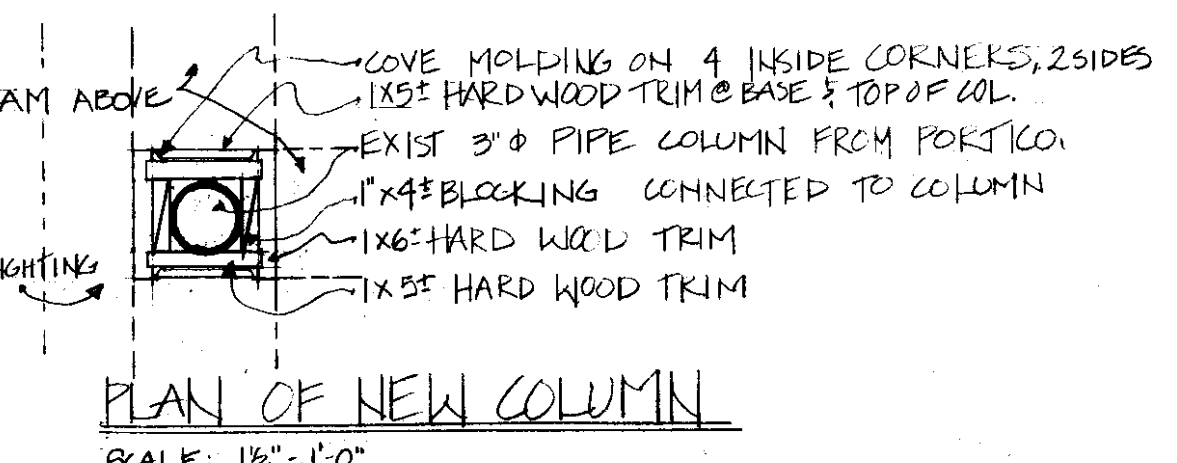 COVE MOLDING ON 4 INSIDE CORNERS, 2 SIDES
AM ABOVE
1X5± HARDWOOD TRIM @ BASE & TOP OF COL.
EXIST 3"Φ PIPE COLUMN FROM PORTICO.
1"X4± BLOCKING CONNECTED TO COLUMN
1X6± HARD WOOD TRIM
IGHTING
1X5± HARD WOOD TRIM
PLAN OF NEW COLUMN
SCALE: 1½"-1'-0"